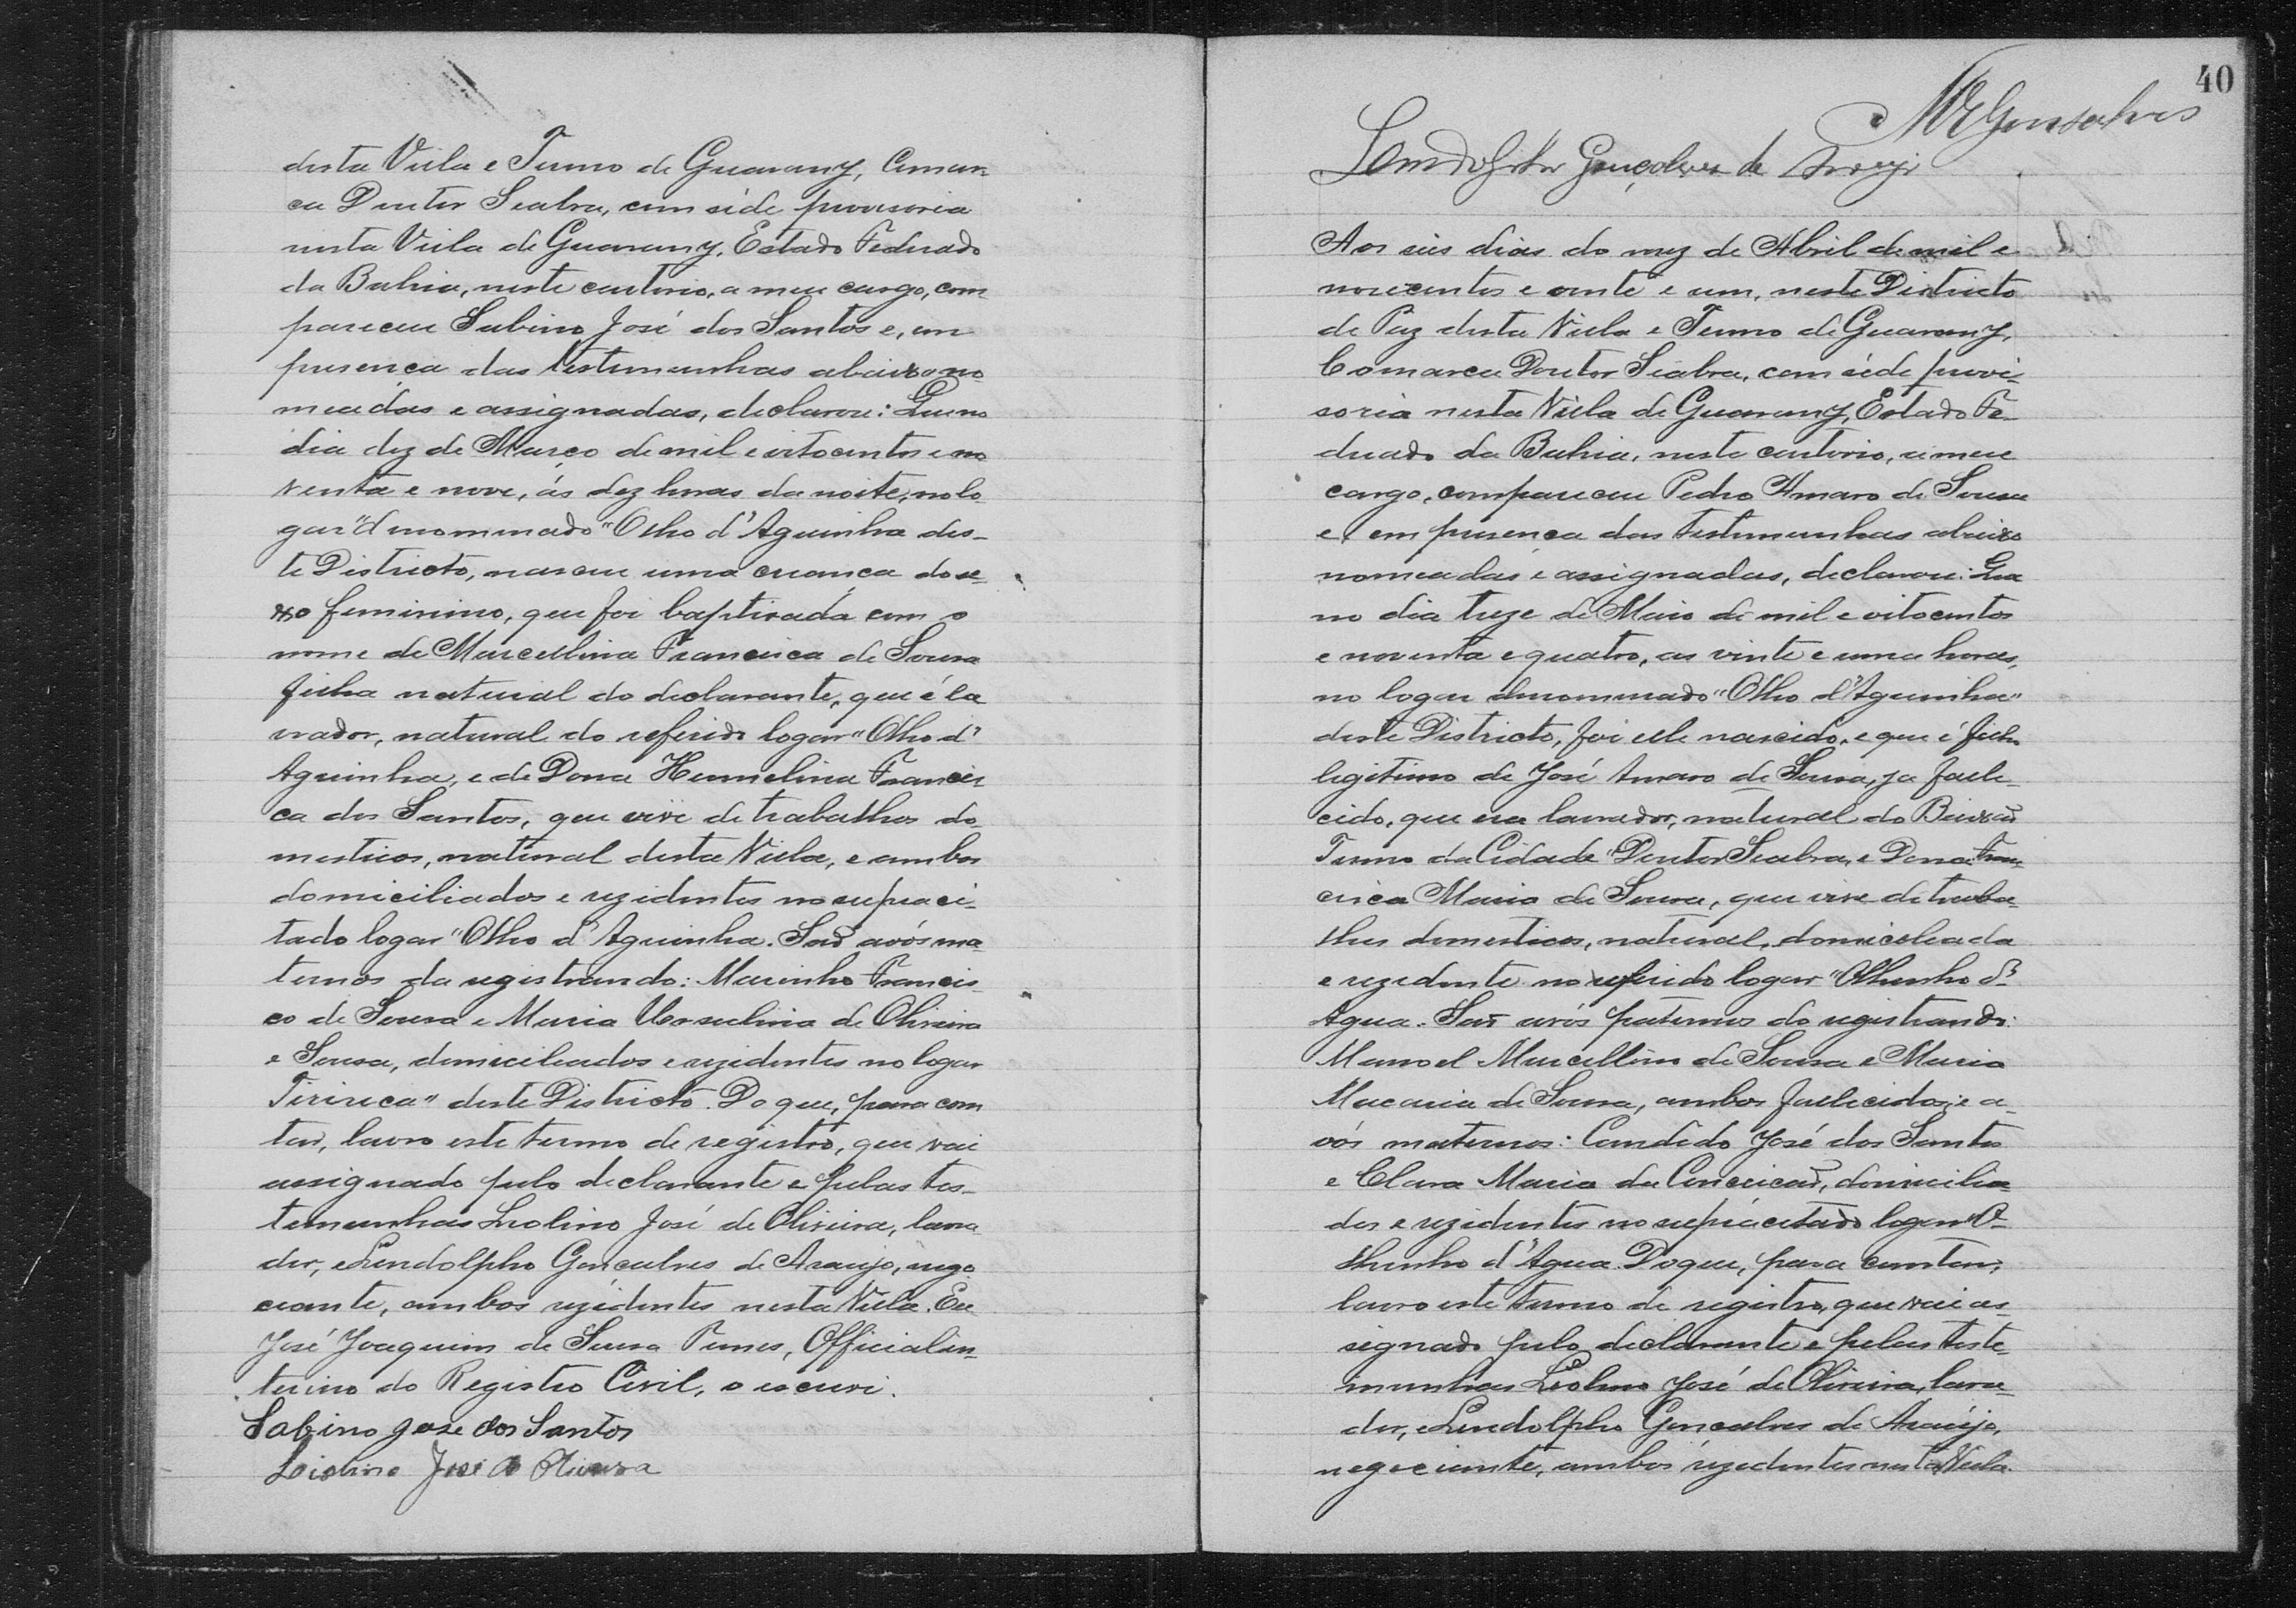 desta Villa e Termo de Guarany, Comar-
ca Doutor Seabra, com séde provisoria
nesta Villa de Guarany, Estado Federado
da Bahia, neste cartorio, a meu cargo, com
pareceu Sabino José dos Santos e, em
presença das testemunhas abaixo no-
meadas e assignadas, declarou: Que no
dia dez de Março de mil e oitocentos e no
venta e nove, ás dez horas da noite, no lo
gar "denominado "Olho d'Aguinha des-
te Districto, nasceu uma creança do se-
xo feminino, que foi baptisada com o
nome de Marcellina Francisca de Sousa
filha natural do declarante, que é la
vrador, natural do referido logar "Olho d'
Aguinha, e de Dona Hermelina Francis
ca dos Santos, que vive de trabalhos do-
mesticos, natural desta Villa, e ambos
domiciliados e rezidentes no supraci-
tado logar "Olho d'Aguinha. São avós ma
ternos da registrando: Marinho Francis-
co de Sousa e Maria de Oliveira
e Sousa, domiciliados e rezidentes no logar
Tiririca" deste Districto. Do que, para cons
tar, lavro este termo de registro, que vai
assignado pelo declarante e pelas tes-
temunhas Liolino José de Oliveira, lavra
dor, e Lindolpho Gonçalves de Araujo, nego
ciante, ambos rezidentes nesta Villa. Eu
José Joaquim de Sousa Tunes, Official in-
terino do Registro Civil, o escrevi.
Sabino Jose dos Santos
Liolino José de Oliveira
40
MEGonsalves
Lendolpho Gonçalves de Araujo
Aos seis dias do mez de Abril de mil e
novecentos e vinte e um, neste Districto
de Paz desta Villa e Termo de Guarany,
Comarca Doutor Seabra, com séde provi-
soria nesta Villa de Guarany, Estado Fe-
derado da Bahia, neste cartorio, a meu
cargo, compareceu Pedro Amaro de Sousa
e, em presença das testemunhas abaixo
nomeadas e assignadas, declarou: Que
no dia treze de Maio de mil e oitocentos
e noventa e quatro, as vinte e uma horas,
no logar denominado "Olho d'Aguinha"
deste Districto, foi elle nascido, e que é filho
legitimo de José Amaro de Sousa, ja falle-
cido, que era lavrador, natural do
Termo da Cidade "Doutor Seabra, e Dona Fran
cisca Maria de Sousa, que vive de traba-
lhos domesticos, natural, domiciliada
e rezidente no referido logar "Olhinho d'
Agua. São avós paternos do registrando:
Manoel Marcellino de Sousa e Maria
Macaria de Sousa, ambos fallecidos; e a-
vós maternos: Candido José dos Santos
e Clara Maria da Conceição, domicilia-
dos e rezidentes no supracitado logar "O-
lhinho d'Agua. Do que, para constar,
lavro este termo de registro, que vai as-
signado pelo declarante e pelas teste-
munhas Liolino José de Oliveira, lavra-
dor, e Lindolpho Gonçalves de Araujo,
negociante, ambos rezidentes nesta Villa.